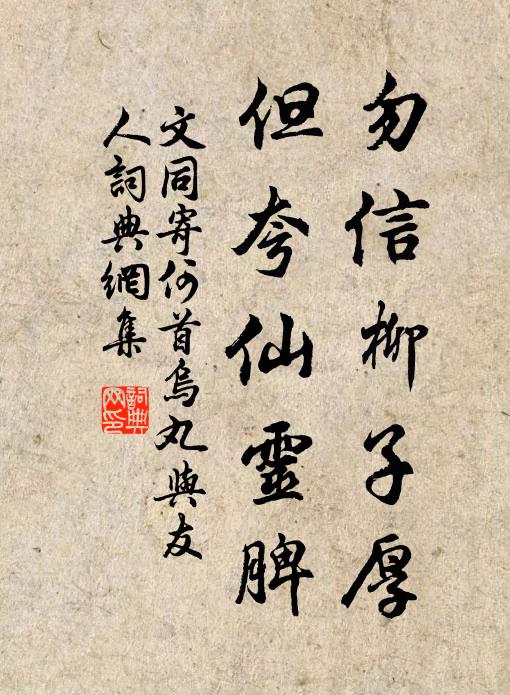 勿信柳子厚
但夸仙靈脾
文同寄何首烏丸與友
人詞典網集
詞典
网印